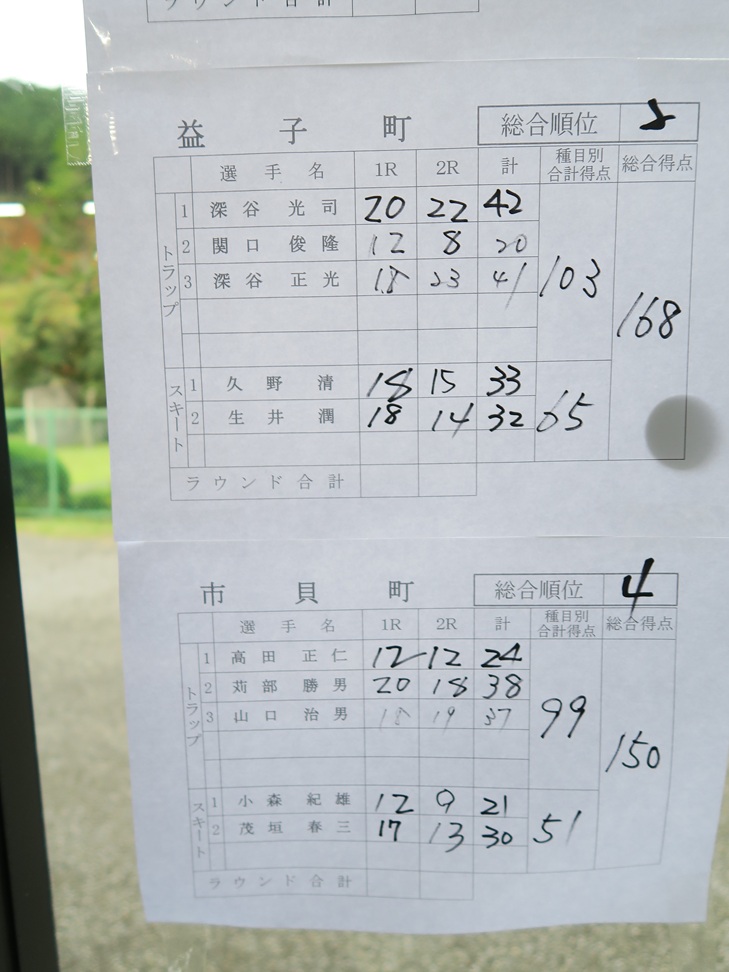 ラウンド合計
益子町 総合順位 2
選手名 1R 2R 計 種目別合計得点 総合得点
トラップ 1 深谷光司 20 22 42
2 関口俊隆 12 8 20
3 深谷正光 18 23 41 103
168
スキート 1 久野清 18 15 33
2 生井潤 18 14 32 65
ラウンド合計
市貝町 総合順位 4
選手名 1R 2R 計 種目別合計得点 総合得点
トラップ 1 高田正仁 12 12 24
2 苅部勝男 20 18 38
3 山口治男 18 19 37 99
150
スキート 1 小森紀雄 12 9 21
2 茂垣春三 17 13 30 51
ラウンド合計